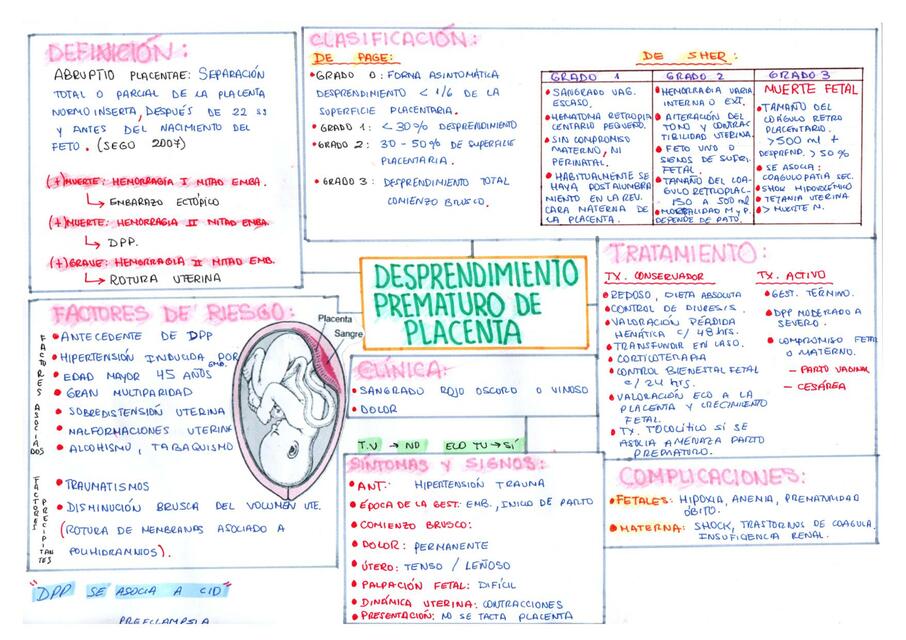 DEFINICIÓN:
ABRUPTIO PLACENTAE: SEPARACIÓN
TOTAL O PARCIAL DE LA PLACENTA
NORMOINSERTA, DESPUÉS DE 22 SS
Y ANTES DEL NACIMIENTO DEL
FETO. (SEGO 2007)
(+) MUERTE: HEMORRAGÍA I MITAD EMBA.
↳ EMBARAZO ECTÓPICO
(+) MUERTE: HEMORRAGIA II MITAD EMBA.
↳ DPP.
(+) GRAVE: HEMORRAGIA II MITAD EMB.
↳ ROTURA UTERINA
CLASIFICACIÓN:
DE PAGE:
GRADO 0: FORMA ASINTOMÁTICA
DESPRENDIMIENTO < 1/6 DE LA
SUPERFICIE PLACENTARIA.
GRADO 1: < 30% DESPRENDIMIENTO
GRADO 2: 30 - 50% DE SUPERFICIE
PLACENTARIA.
GRADO 3: DESPRENDIMIENTO TOTAL
COMIENZO BRUSCO.
DE SHER:
GRADO 1
SANGRADO VAG.
ESCASO.
HEMATOMA RETROPLA
CENTARIO PEQUEÑO.
SIN COMPROMISO
MATERNO, NI
PERINATAL.
HABITUALMENTE SE
HAYA POSTALUMBRA
MIENTO EN LA REV.
CARA MATERNA DE
LA PLACENTA.
GRADO 2
HEMORRAGIA VARIA
INTERNA O EXT.
ALTERACIÓN DEL
TONO Y CONTRAC
TIBILIDAD UTERINA.
FETO VIVO O
SIGNOS DE SUFRI.
FETAL.
TAMAÑO DEL COA-
GULO RETROPLAC-
150 A 500 ml
MORTALIDAD M y P.
DEPENDE DE PATO.
GRADO 3
MUERTE FETAL
TAMAÑO DEL
COÁGULO RETRO
PLACENTARIO.
> 500 ml +
DESPREND. > 50%
SE ASOCIA:
COAGULOPATIA SEC.
SHOK HIPOVOLÉMICO
TETANIA UTERINA
> MUERTE M.
DESPRENDIMIENTO
PREMATURO DE
PLACENTA
TRATAMIENTO:
TX. CONSERVADOR
REPOSO, DIETA ABSOLUTA
CONTROL DE DIURESIS.
VALORACIÓN PÉRDIDA
HEMÁTICA C/ 48 HRS.
TRANSFUNDIR EN CASO.
CORTICOTERAPIA
CONTROL BIENESTAR FETAL
C/ 24 HRS.
VALORACIÓN ECO A LA
PLACENTA Y CRECIMIENTO
FETAL.
TX. TOCOLÍTICO SI SE
ASOCIA AMENAZA PARTO
PREMATURO.
TX. ACTIVO
GEST. TÉRMINO.
DPP MODERADO A
SEVERO.
COMPROMISO FETAL
O MATERNO.
- PARTO VAGINAL
- CESÁREA
FACTORES DE RIESGO:
FACTORES ASOCIADOS
ANTECEDENTE DE DPP
HIPERTENSIÓN INDUCIDA POR
EMB.
EDAD MAYOR 45 AÑOS
GRAN MULTIPARIDAD
SOBREDISTENSIÓN UTERINA
MALFORMACIONES UTERINA
ALCOHISMO, TABAQUISMO
FACTORES PRECIPITANTES
TRAUMATISMOS
DISMINUCIÓN BRUSCA DEL VOLUMEN UTE.
(ROTURA DE MEMBRANAS ASOCIADO A
POLIHIDRAMNIOS).
Placenta
Sangre
CLÍNICA:
SANGRADO ROJO OSCURO O VINOSO
DOLOR
T.V → NO ECO TV → SÍ
SÍNTOMAS Y SIGNOS:
ANT: HIPERTENSIÓN TRAUMA
ÉPOCA DE LA GEST: EMB, INICIO DE PARTO
COMIENZO BRUSCO:
DOLOR: PERMANENTE
ÚTERO: TENSO / LEÑOSO
PALPACIÓN FETAL: DIFÍCIL
DINÁMICA UTERINA: CONTRACCIONES
PRESENTACIÓN: NO SE TACTA PLACENTA
COMPLICACIONES:
FETALES: HIPOXIA, ANEMIA, PREMATURIDAD
ÓBITO.
MATERNA: SHOCK, TRASTORNOS DE COAGULA.
INSUFICIENCIA RENAL.
"DPP SE ASOCIA A CID"
PREECLAMPSIA